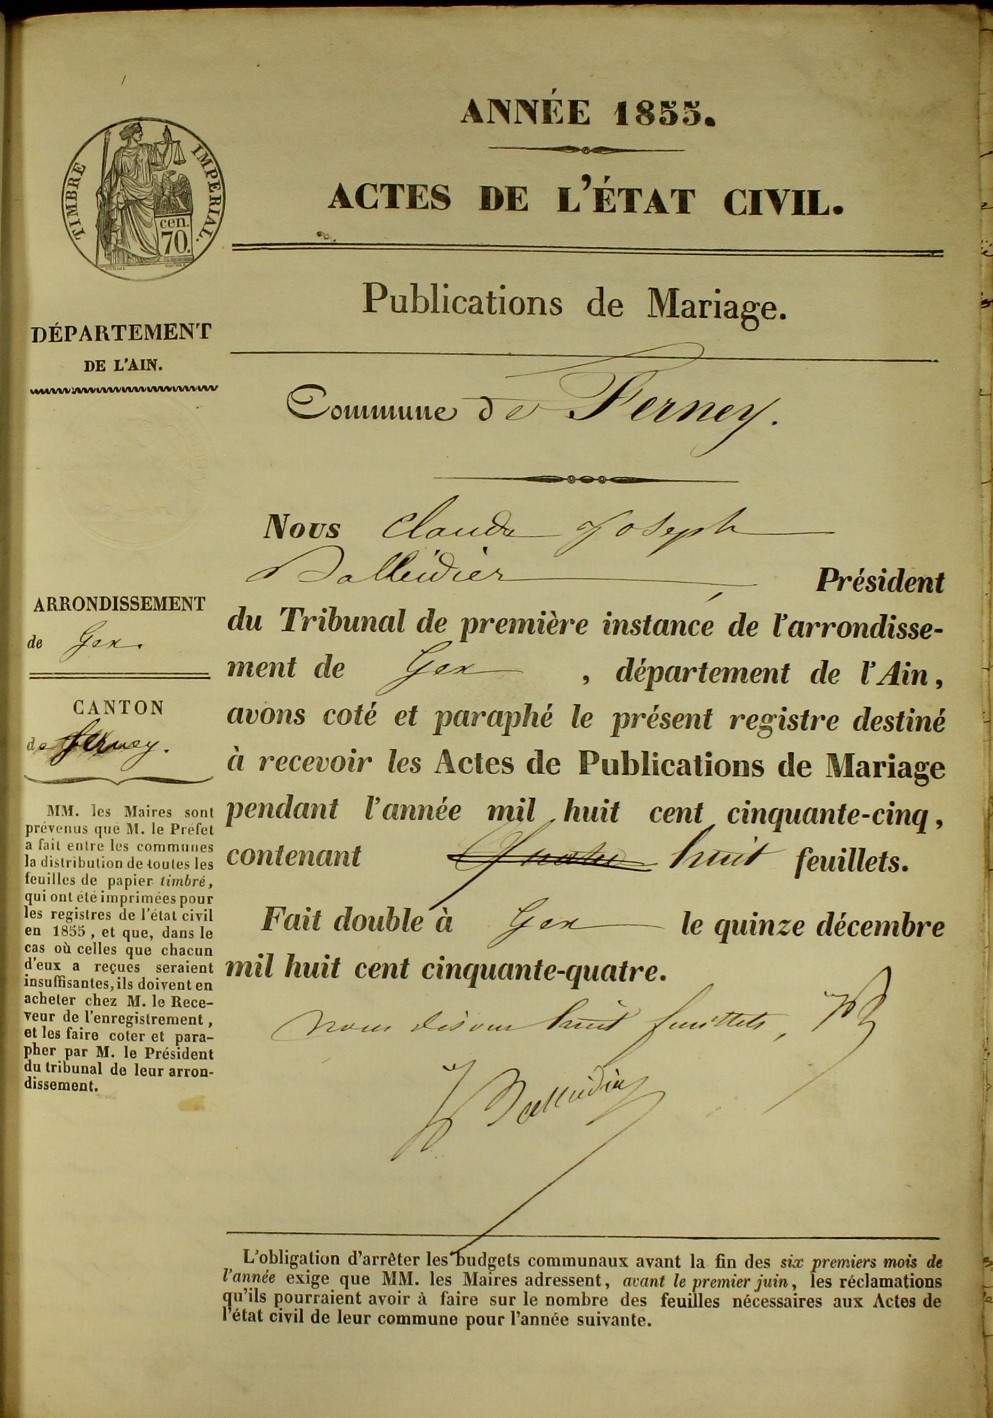 ANNÉE 1855.
ACTES DE L'ÉTAT CIVIL.
TIMBRE IMPERIAL.
cen.
70.
Publications de Mariage.
DÉPARTEMENT
DE L'AIN.
Commune de Ferney.
Nous Claude Joseph
Balleidier Président
du Tribunal de première instance de l'arrondisse-
ment de Gex , département de l'Ain,
avons coté et paraphé le présent registre destiné
à recevoir les Actes de Publications de Mariage
pendant l'année mil huit cent cinquante-cinq,
contenant quatre huit feuillets.
Fait double à Gex le quinze décembre
mil huit cent cinquante-quatre.
nous disons huit feuillets,
Balleidier
ARRONDISSEMENT
de Gex.
CANTON
de ferney.
MM. les Maires sont
prévenus que M. le Préfet
a fait entre les communes
la distribution de toutes les
feuilles de papier timbré,
qui ont été imprimées pour
les registres de l'état civil
en 1855, et que, dans le
cas où celles que chacun
d'eux a reçues seraient
insuffisantes, ils doivent en
acheter chez M. le Rece-
veur de l'enregistrement,
et les faire coter et para-
pher par M. le Président
du tribunal de leur arron-
dissement.
L'obligation d'arrêter les budgets communaux avant la fin des six premiers mois de
l'année exige que MM. les Maires adressent, avant le premier juin, les réclamations
qu'ils pourraient avoir à faire sur le nombre des feuilles nécessaires aux Actes de
l'état civil de leur commune pour l'année suivante.